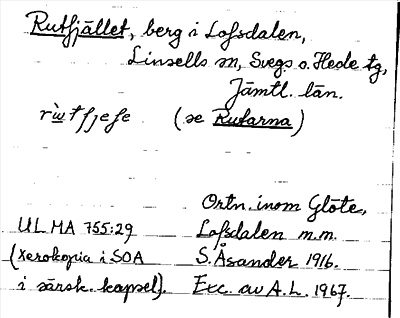 Rutfjället, berg i Lofsdalen,
Linsells sn, Svegs o. Hede tg,
Jämtl. län.
rẁtfjeſe (se Rutarna)
Ortn. inom Glöte,
ULMA 755:29 Lofsdalen m.m.
(xerokopia i SOA S. Åsander 1916.
i särsk. kapsel). Exc. av A.L. 1967.